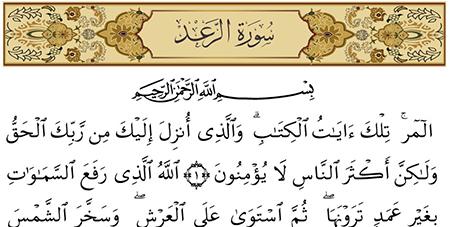 سُورَةُ الرَّعْدِ
بِسْمِ اللَّهِ الرَّحْمَٰنِ الرَّحِيمِ
الٓمٓر ۚ تِلْكَ ءَايَٰتُ ٱلْكِتَٰبِ ۗ وَٱلَّذِىٓ أُنزِلَ إِلَيْكَ مِن رَّبِّكَ ٱلْحَقُّ
وَلَٰكِنَّ أَكْثَرَ ٱلنَّاسِ لَا يُؤْمِنُونَ ﴿١﴾ ٱللَّهُ ٱلَّذِى رَفَعَ ٱلسَّمَٰوَٰتِ
بِغَيْرِ عَمَدٍ تَرَوْنَهَا ۖ ثُمَّ ٱسْتَوَىٰ عَلَى ٱلْعَرْشِ ۖ وَسَخَّرَ ٱلشَّمْسَ